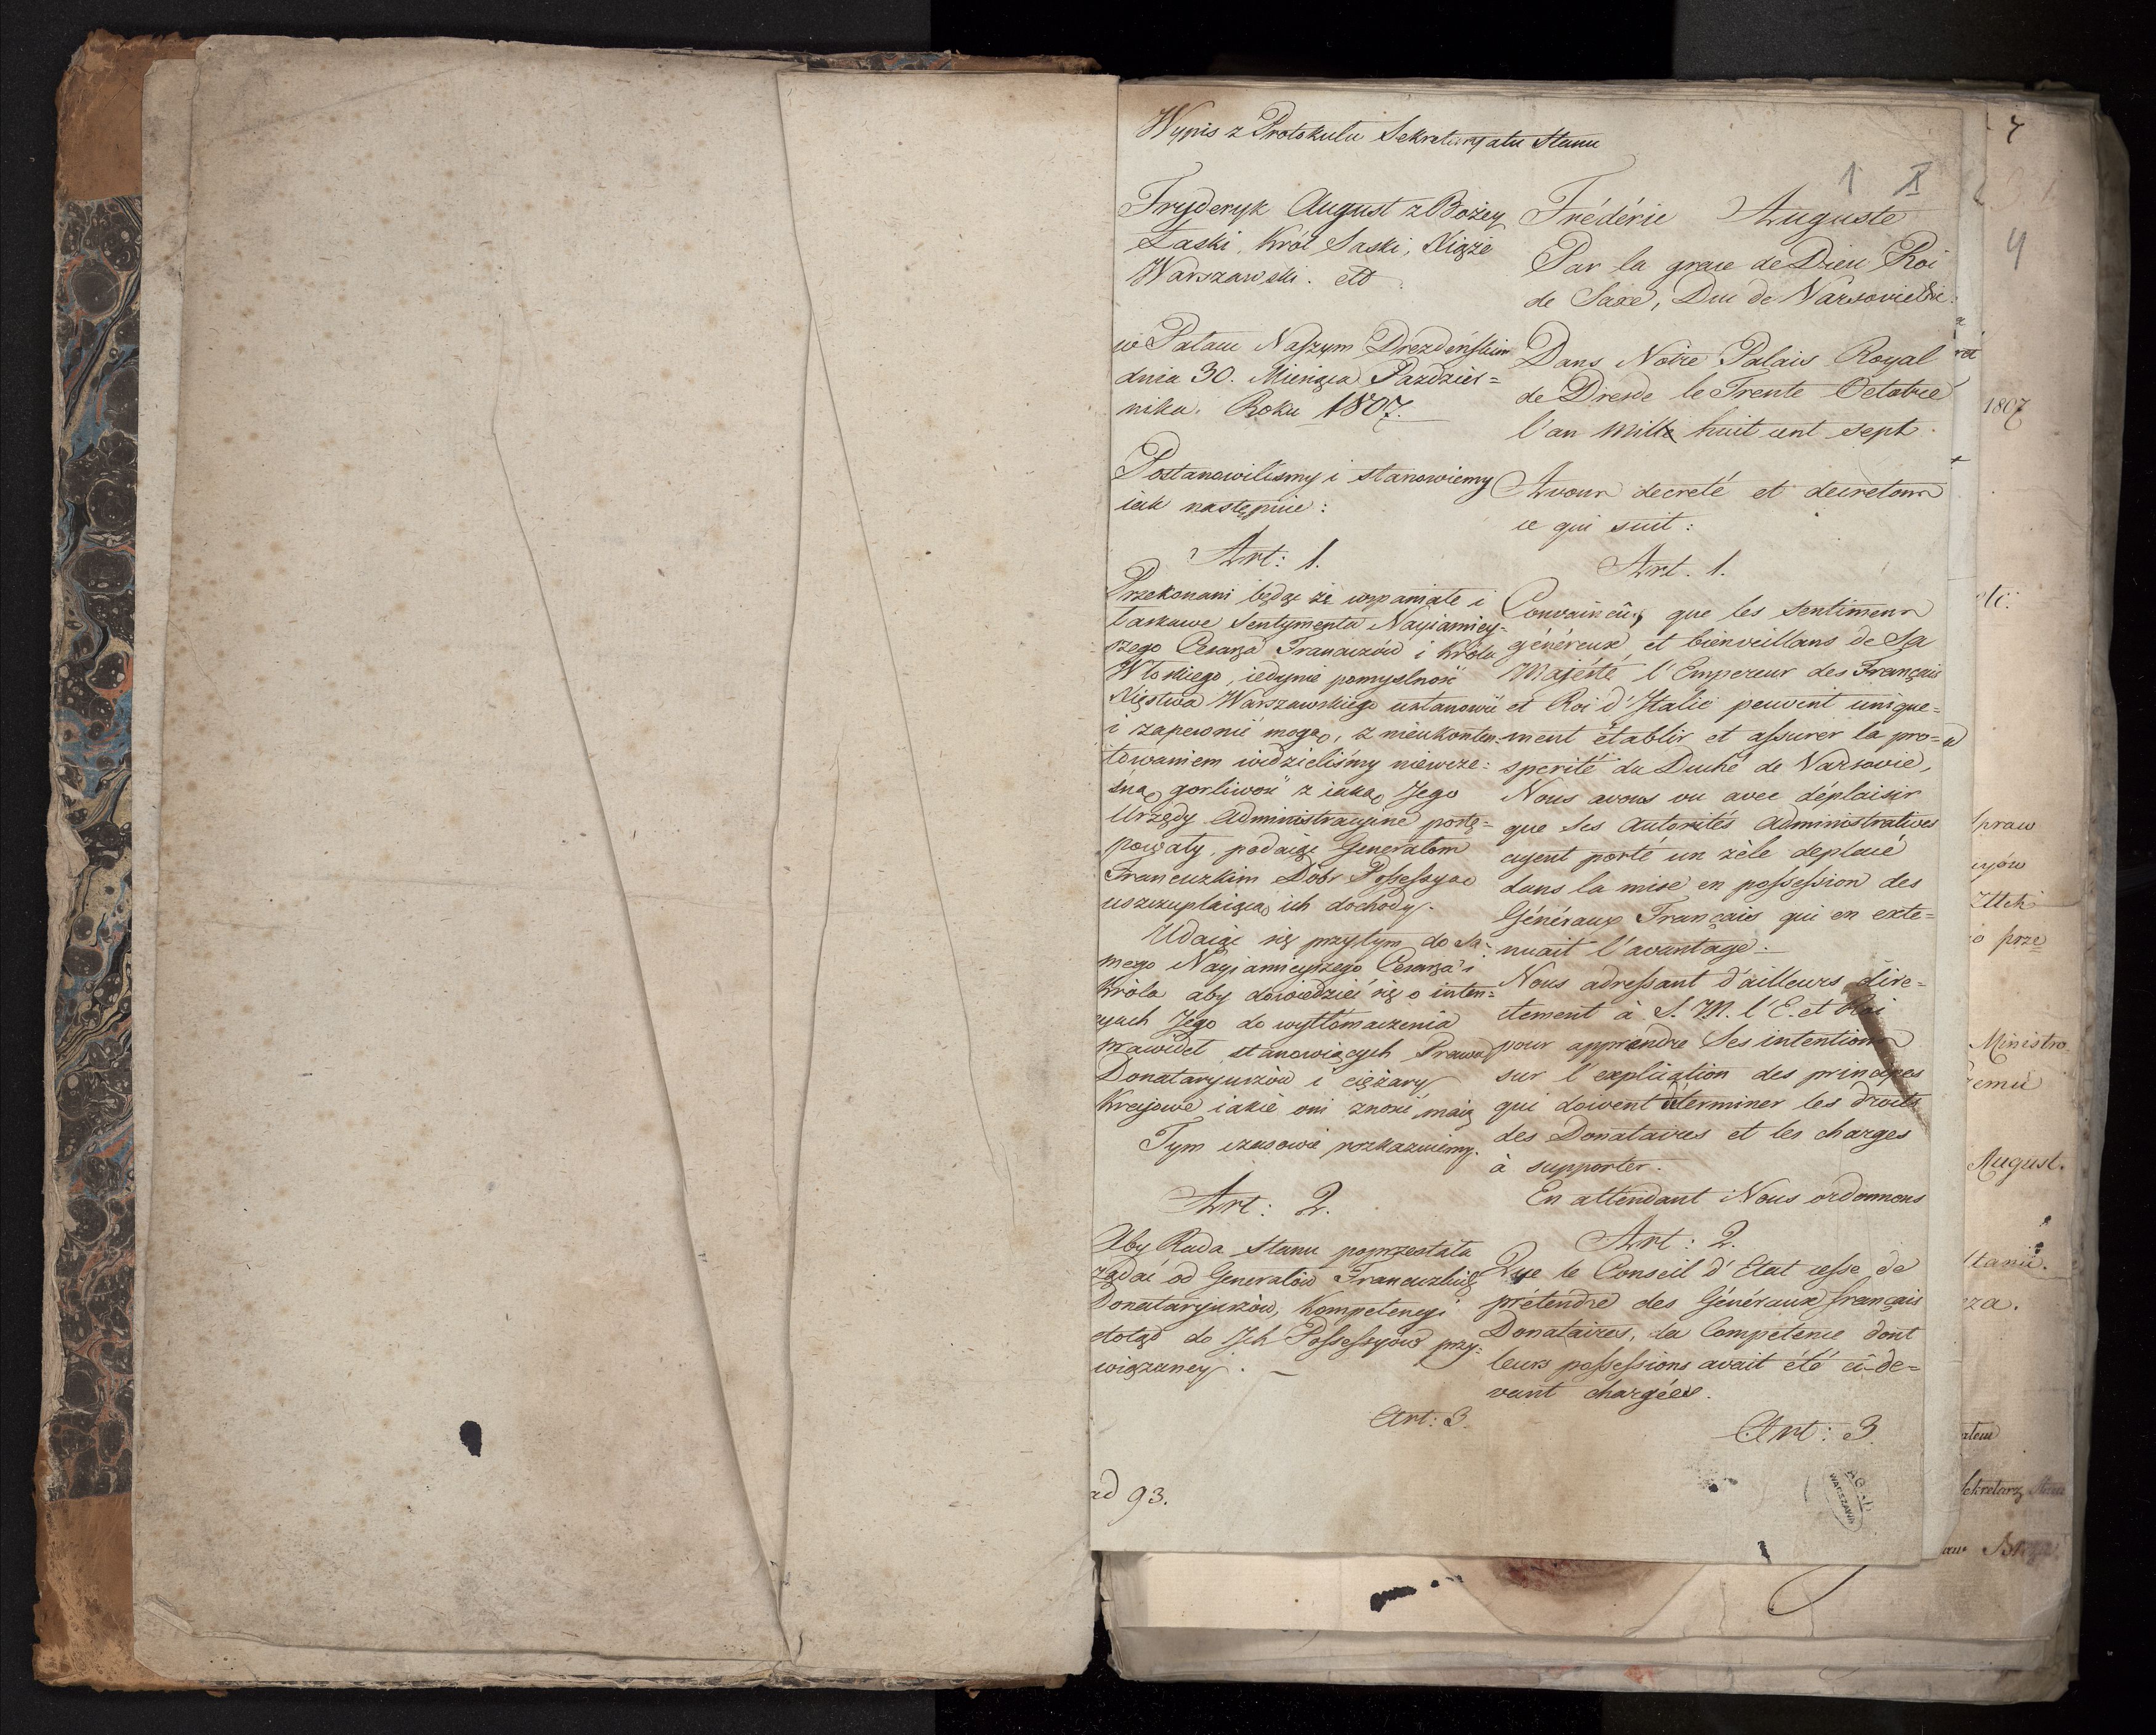 Wypis z Protokułu Sekretaryatu Stanu
1 I
Fryderyk August z Bożey
Łaski, Król Saski, Xiąże
Warszawski. etc
w Pałacu Naszym Drezdeńskim
dnia 30. Miesiąca Paździer=
nika. Roku 1807.
Postanowiliśmy i stanowiemy
iak następuie:
Art: 1.
Przekonani będąc że wspaniałe i
łaskawe Sentymenta Nayiaśniey-
szego Cesarza Francuzów i Króla
Włoskiego, iedynie pomyślność
Xięstwa Warszawskiego ustanowić
i zapewnić mogą, z nieukonten-
towaniem widzieliśmy niewcze=
sną gorliwość z iaką Jego
Urzędy Administracyine postę=
powały, podaiąc Generałom
Francuzkim Dobr Possessyą
uszczuplaiącą ich dochody.
Udaiąc się przytym do Sa-
mego Nayiaśnieyszego Cesarza i
Króla aby dowiedzieć się o inten=
cyach Jego do wytłomaczenia
prawideł stanowiących Prawa
Donataryuszów i ciężary
Krajowe iakie oni znosić maią
Tym czasowie rozkazuiemy.
Art: 2.
Aby Rada Stanu poprzestała
żądać od Generałów Francuzkich
Donataryuszów, Kompetencyi
dotąd do Ich Possessyów przy-
wiązaney. —
Art: 3.
ad 93.
Frédéric Auguste
Par la grace de Dieu Roi
de Saxe, Duc de Varsovie etc.
Dans Notre Palais Royal
de Dresde le Trente Octobre
l'an mille huit cent sept.
Avons decreté et decretons
ce qui suit:
Art. 1.
Convaincûs, que les sentimens
généreux, et bienveillans de Sa
Majesté l'Empereur des Français
et Roi d'Italie peuvent unique=
ment établir et assurer la pro=
sperité du Duché de Varsovie,
Nous avons vu avec déplaisir
que Ses Autorités Administratives
ayent porté un zèle deplacé
dans la mise en possession des
Généraux Français qui en exte=
nuait l'avantage.—
Nous adressant d'ailleurs dire=
ctement à S. M. l'E. et Roi
pour apprendre Ses intentions
sur l'explication des principes
qui doivent déterminer les droits
des Donataires et les charges
à supporter.
En attendant Nous ordonnons
Art: 2.
Que le Conseil d'Etat cesse de
prétendre des Généraux français
Donataires, la Competence dont
leurs possessions avait été ci-de=
vant chargées.
Art: 3
AGAD
WARSZAWA
4
1807
etc:
spraw
Ministro
August.
Stanu.
Sekretarz Stanu